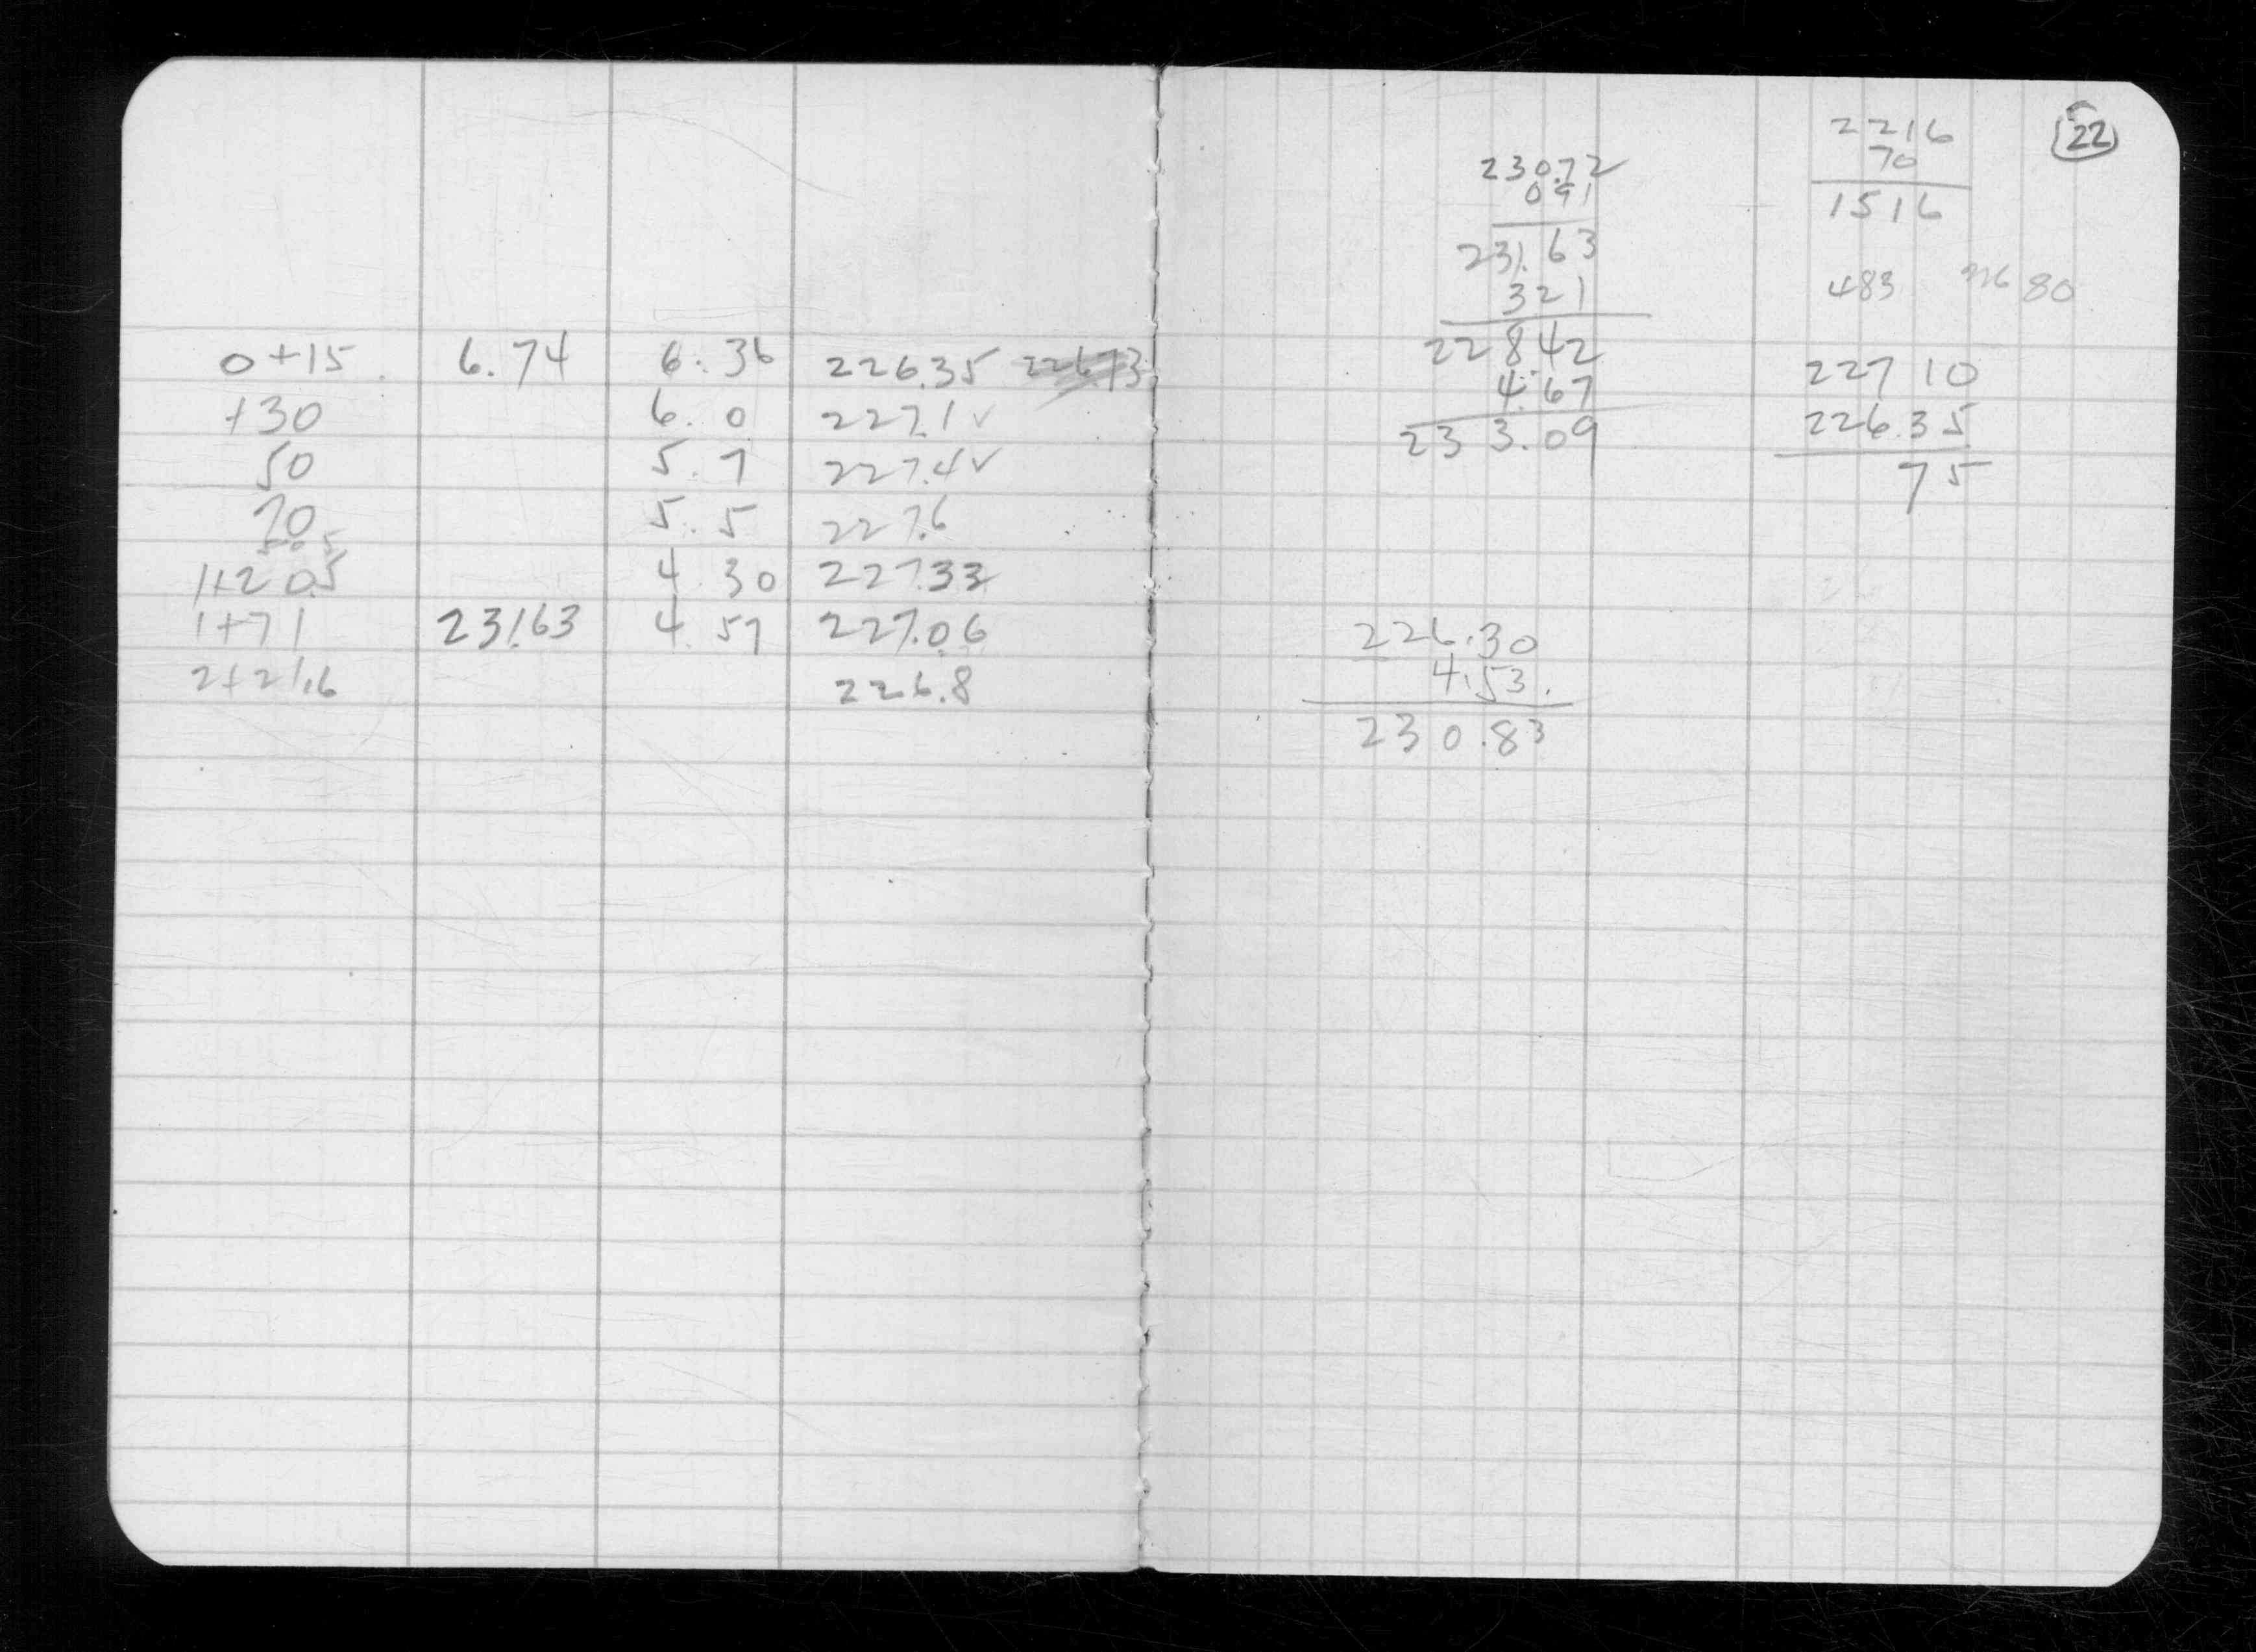 0+15 6.74 6.36 226.35
+30 6.0 227.1 ✓
50 5.7 227.4 ✓
70 5.5 227.6
1+20.5 4.30 227.33
1+71 231.63 4.57 227.06
2+21.6 226.8
22
230.72
091
231.63
321
22842
4.67
233.09
226.30
4.53.
230.83
2216
70
1516
483 80
227 10
226.35
75